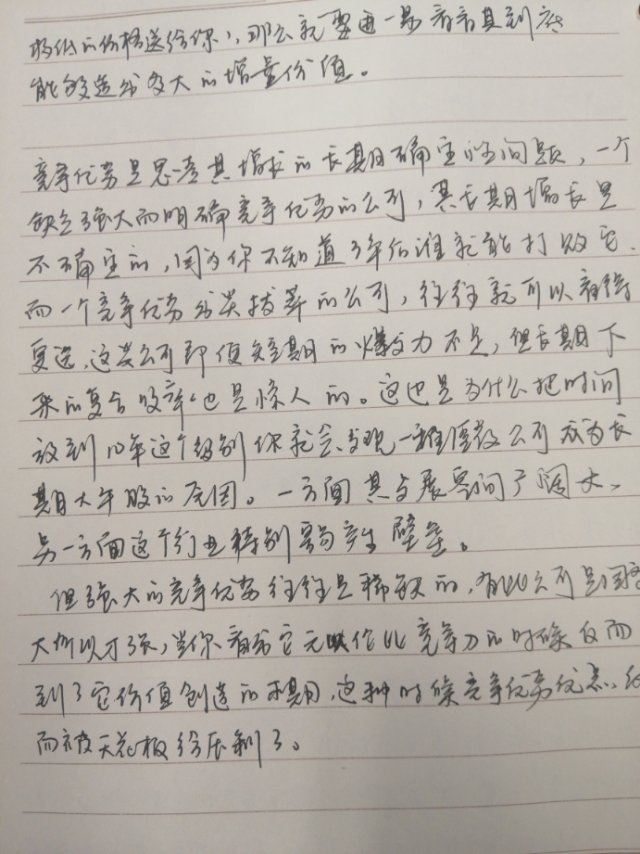 格低的价格送给你），那么就要进一步看看其到底
能够造成多大的增量价值。
竞争优势是思考其增长的长期确定性问题，一个
缺乏强大而明确竞争优势的公司，其长期增长是
不确定的，因为你不知道3年后谁就能打败它。
而一个竞争优势出类拔萃的公司，往往就可以看得
更远，这类公司即便短期的爆发力不足，但长期下
来的复合收益率也是惊人的。这也是为什么把时间
放到10年这个级别你就会发现一堆医药公司成为长
期大牛股的原因。一方面其发展空间广阔大、
另一方面这个行业特别容易产生壁垒。
但强大的竞争优势往往是稀缺的，有些公司是因为
大所以才强，当你看出它无以伦比竞争力的时候反而
到了它价值创造的末期，这种时候竞争优势优点
而被天花板给压制了。